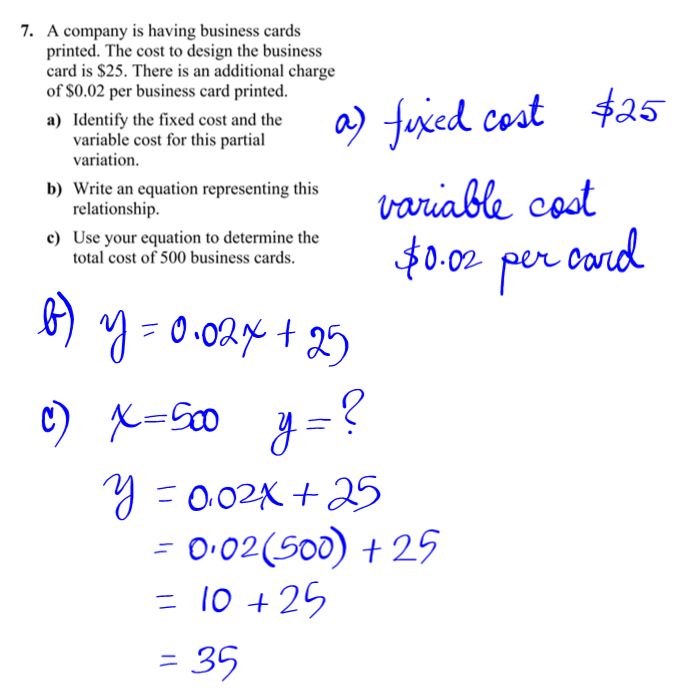 7. A company is having business cards
printed. The cost to design the business
card is $25. There is an additional charge
of $0.02 per business card printed.
a) Identify the fixed cost and the
variable cost for this partial
variation.
b) Write an equation representing this
relationship.
c) Use your equation to determine the
total cost of 500 business cards.
a) fixed cost $25
variable cost
$0.02 per card
b) y = 0.02x + 25
c) x = 500 y = ?
y = 0.02x + 25
= 0.02(500) + 25
= 10 + 25
= 35